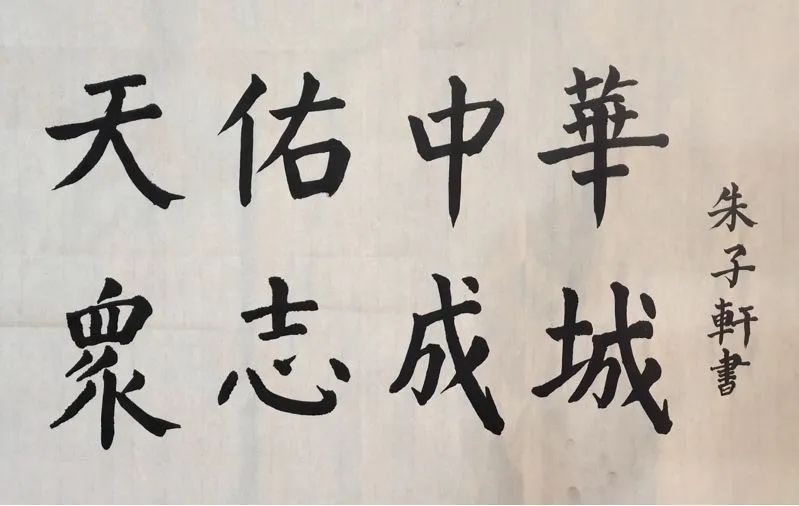 天佑中華
衆志成城
朱子軒書